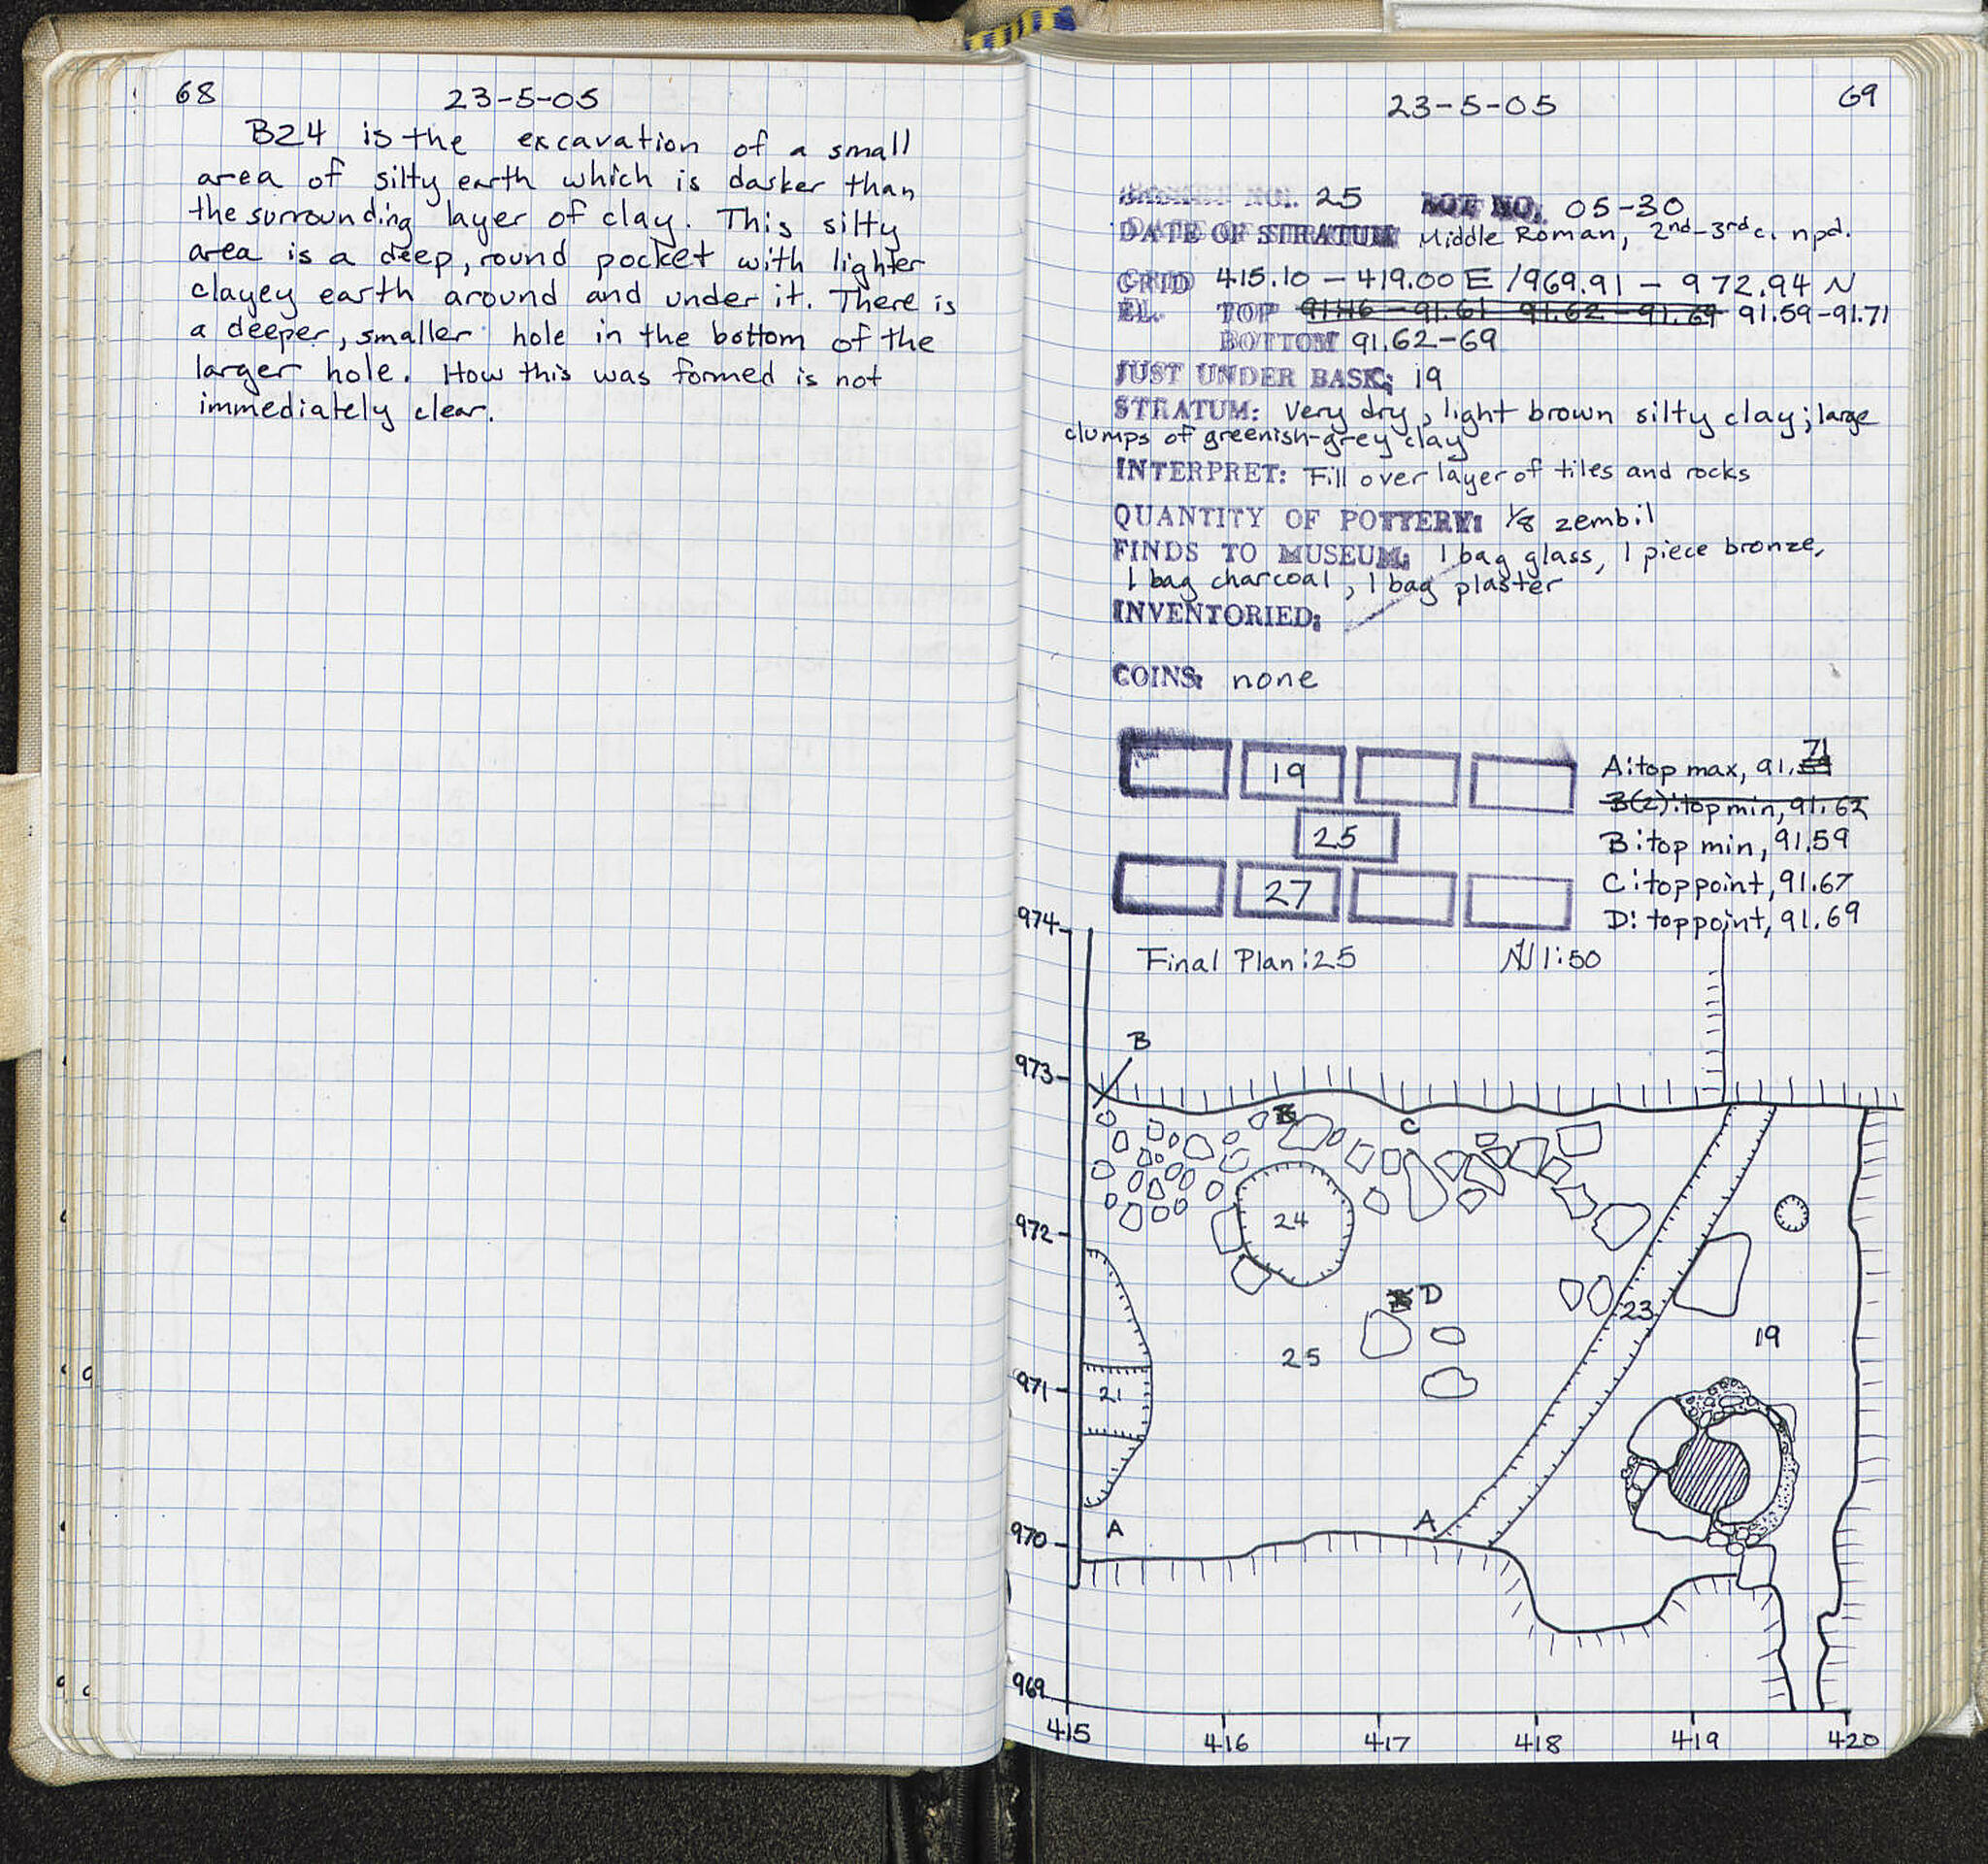 68
23-5-05
B24 is the excavation of a small
area of silty earth which is darker than
the surrounding layer of clay. This silty
area is a deep, round pocket with lighter
clayey earth around and under it. There is
a deeper, smaller hole in the bottom of the
larger hole. How this was formed is not
immediately clear.
69
23-5-05
BASKET NO.: 25 LOT NO. 05-30
DATE OF STRATUM Middle Roman, 2nd-3rd c. npd.
GRID 415.10 - 419.00 E / 969.91 - 972.94 N
EL. TOP 91.46 - 91.61 91.62 - 91.69 91.59-91.71
BOTTOM 91.62-69
JUST UNDER BASK: 19
STRATUM: Very dry, light brown silty clay; large
clumps of greenish-grey clay
INTERPRET: Fill over layer of tiles and rocks
QUANTITY OF POTTERY: 1/8 zembil
FINDS TO MUSEUM: 1 bag glass, 1 piece bronze,
1 bag charcoal, 1 bag plaster
INVENTORIED:
COINS: none
19
25
27
A: top max, 91. 71
B(2): top min, 91.62
B: top min, 91.59
C: toppoint, 91.67
D: toppoint, 91.69
Final Plan: 25 N 1:50
974
973
972
971
970
969
B
B
C
24
D
23
25
19
21
A
A
415 416 417 418 419 420